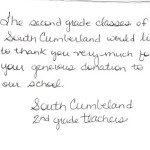 The second grade classes of
South Cumberland would li
to thank you very much fo
your generous donation to
our school.
South Cumbeland
2nd grade teachers